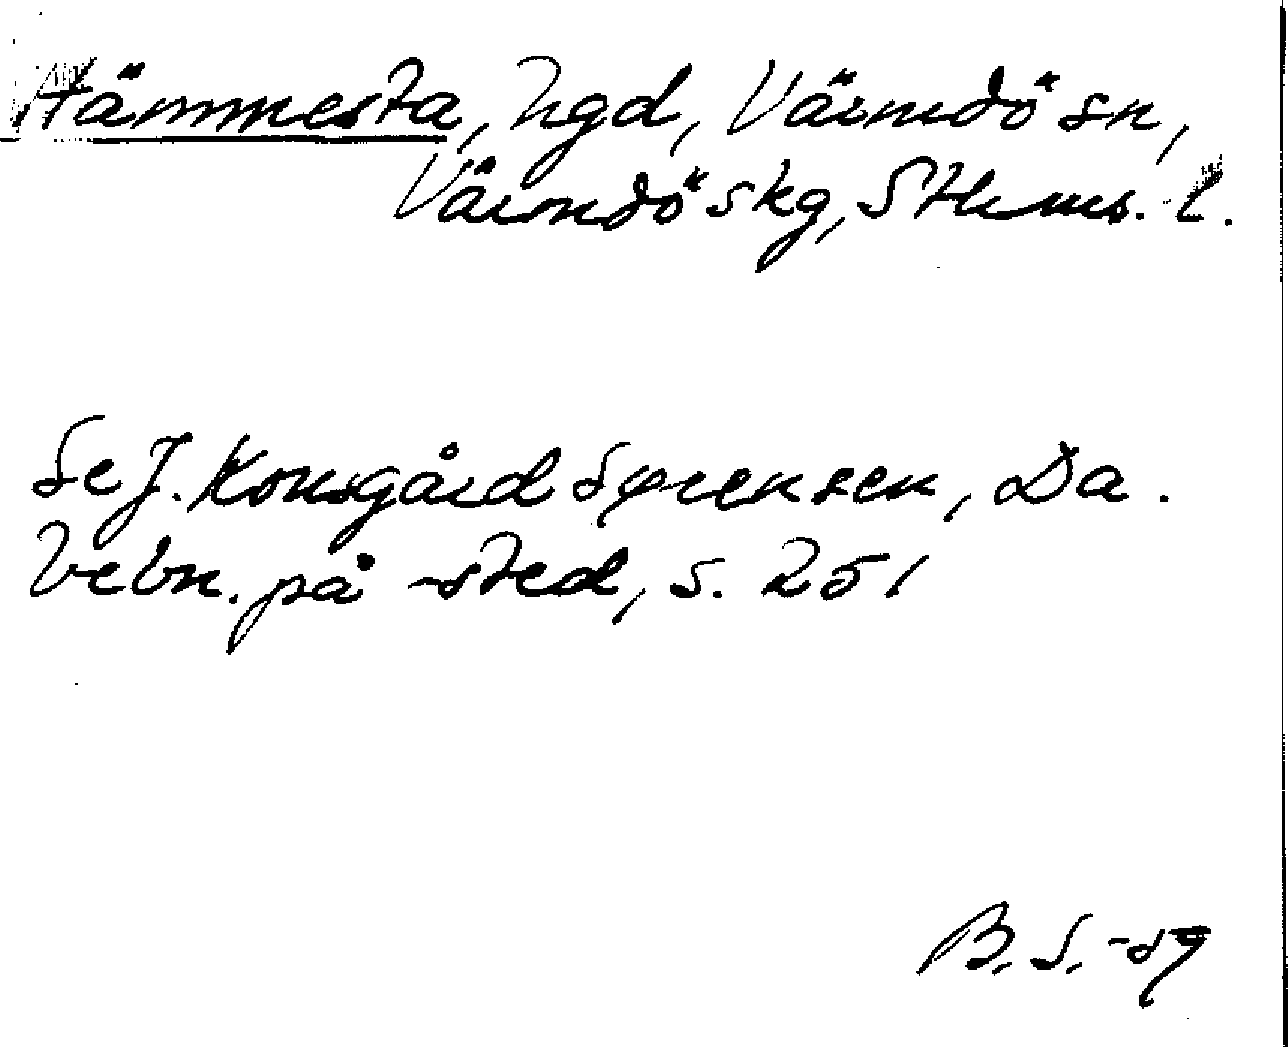 Hämmesta, hgd, Värmdö sn,
Värmdö skg, Sthms. l.
Se J. Kousgård Sørensen, Da.
bebn. på -sted, s. 251
B. S. -59